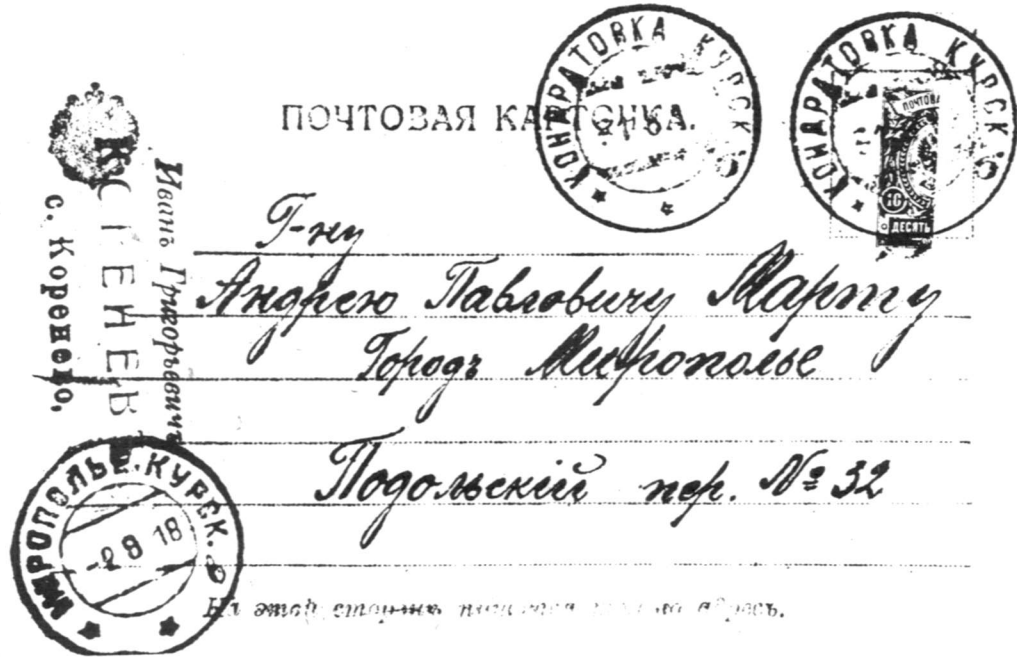 ПОЧТОВАЯ КАРТОЧКА.
КОНДРАТОВКА КУРСК.
КОНДРАТОВКА КУРСК.
ПОЧТОВА
10
ДЕСЯТЬ
Иванъ Григорьевичъ
с. Коренево,
Г-ну
Андрею Павловичу Марту
Городъ Мирополье
Подольскій пер. № 32
МИРОПОЛЬЕ. КУРСК.
-2 8 18
На этой сторонѣ адресъ.